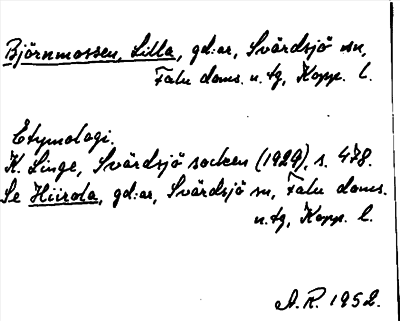 Björnmossen, Lilla, gd:ar, Svärdsjö sn,
Falu doms. n. tg, Kopp. l.
Etymologi.
K. Linge, Svärdsjö socken (1929), s. 478.
Se Hiirola, gd:ar, Svärdsjö sn, Falu doms.
n. tg, Kopp. l.
A. R. 1952.